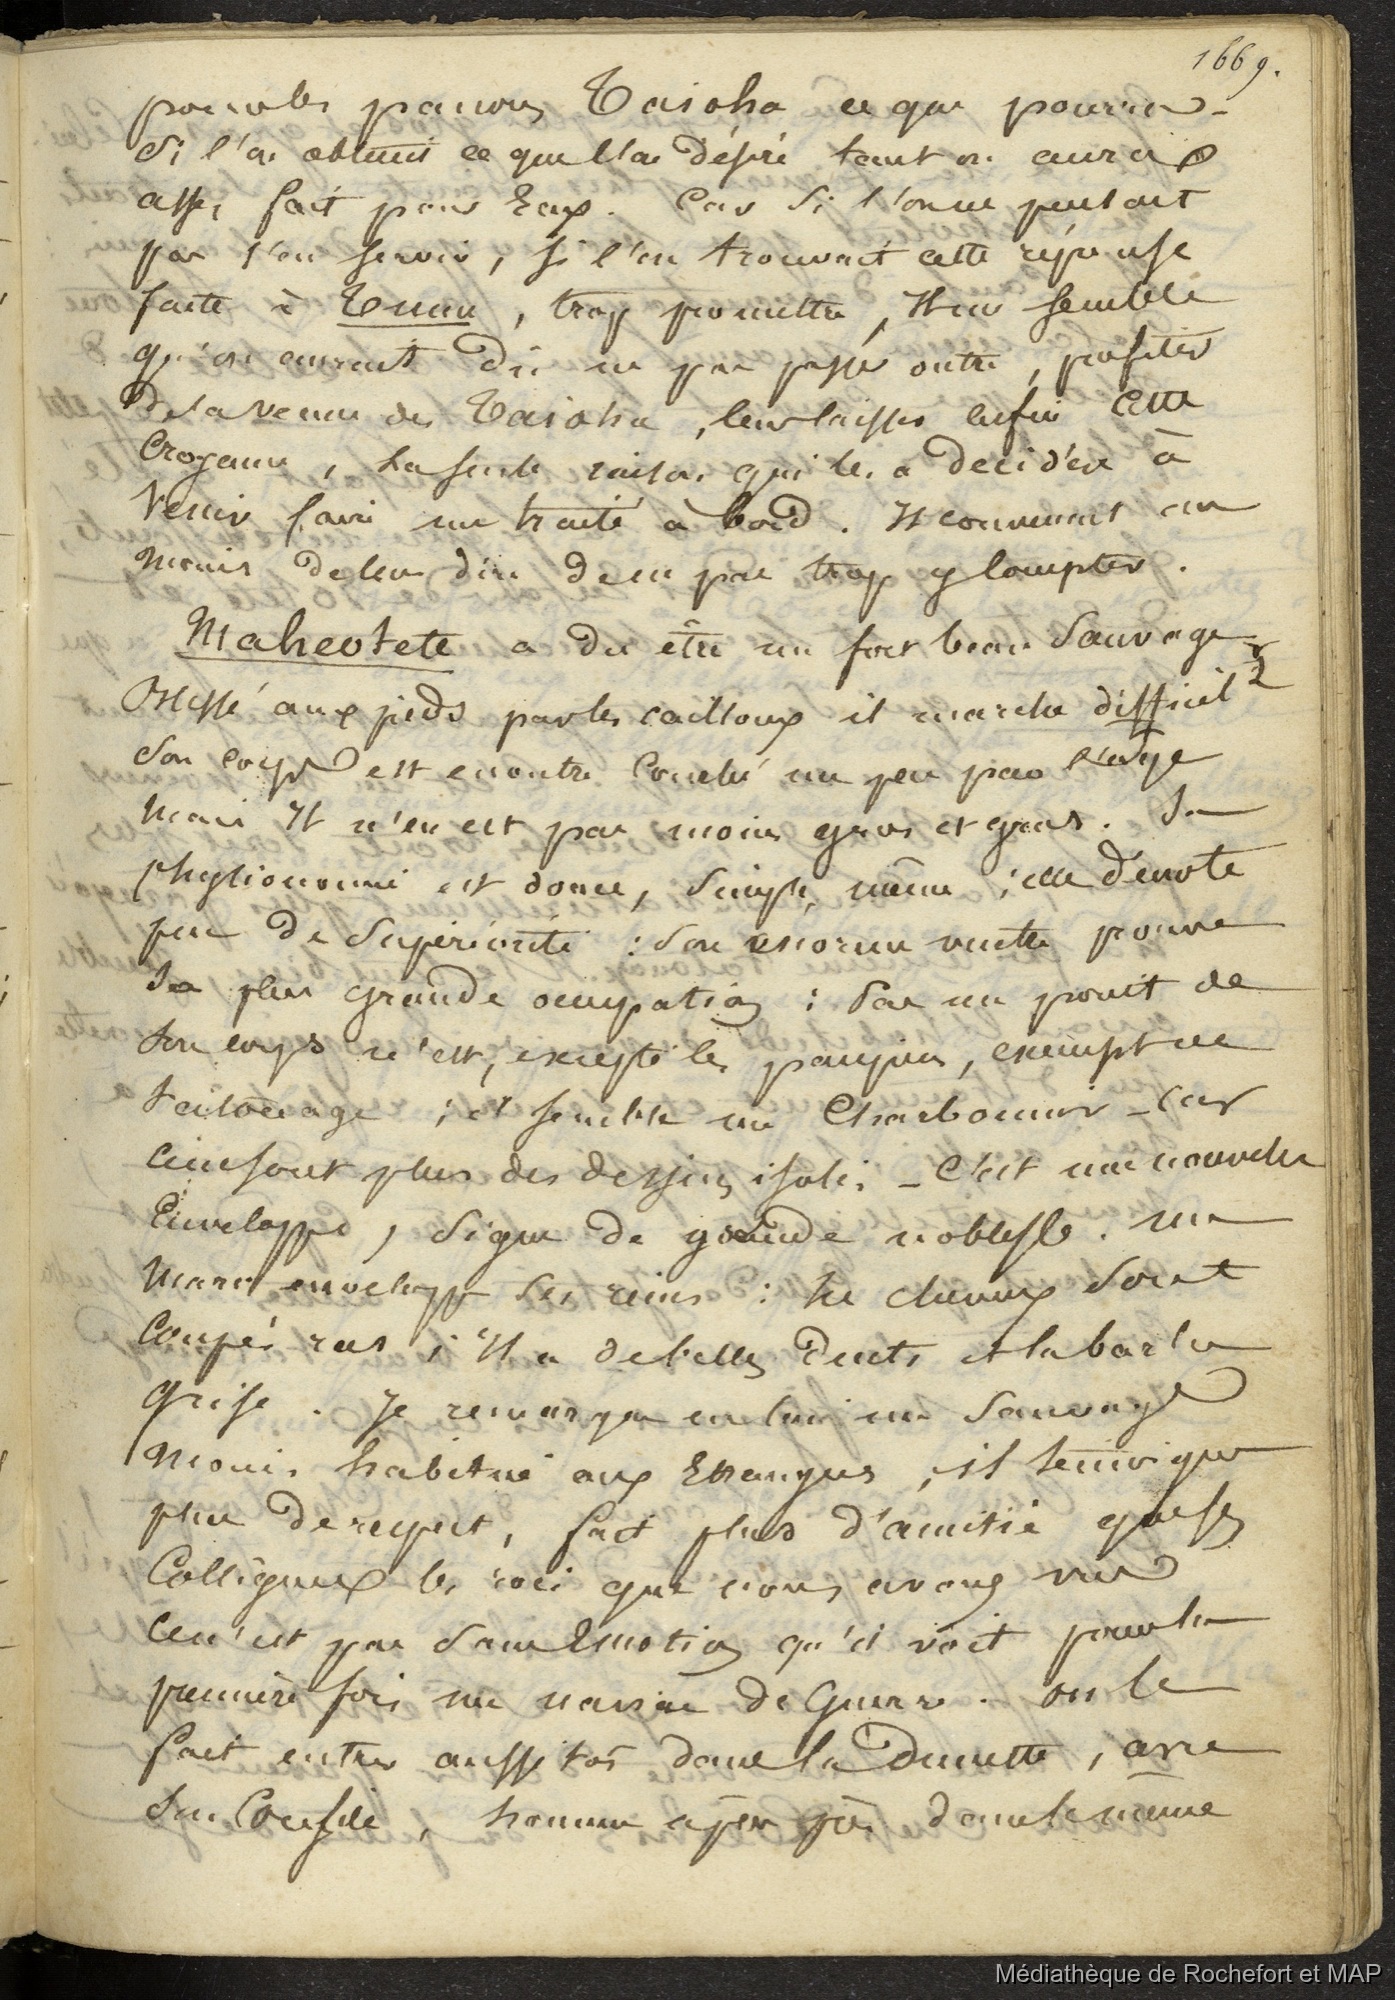 1669.
pour les pauvres Taioha ce que pourra
Si l'on obtenit ce que l'on désire tant on aura
assez fait pour Eux. Car si l'on ne pensait
pas s'en servir, si l'on trouvait cette réponse
faite à , trop promettre, Il me semble
qu'on aurait dû ne pas passer outre, profiter
de la venue des Taioha, leur laisser enfin cette
Croyance, la seule raison qui les a décidére à
Venir faire un traité à bord. Il convenait au
moins de leur dire de ne pas trop y Compter.
Maheotete a du être un fort beau Sauvage
Blessé aux pieds par les cailloux il marche difficilt
Son corps est en outre Courbé un peu par l'age
Mais Il n'en est pas moins gros et gras. Sa
physionomie est douce, Simple, même ; elle dénote
peu de Supériorité : Son énorme ventre prouve
Sa plus grande occupation : Pas un point de
Son corps n'est, excepté les paupières, exempt de
tatouage ; il semble un Charbonnier - Car
Ce ne sont plus des dessins isolés - C'est une nouvelle
Enveloppe, Signe de grande noblesse. Un
Maro enveloppe Ses reins : les cheveux Sont
Coupés ras ; Il a de belles dents et la barbe
grise. Je remarque en lui un Sauvage
Moins habitué aux Etrangers, il témoigne
plus de respect, fait plus d'amitié que ses
Collègues les rois que nous avons vus
Ce n'est pas Sans Emotion qu'il voit pour la
première fois un navire de Guerre. On le
fait entrer aussitôt dans la Dunette, avec
Son Conseil, homme à peu près dans le même
Médiathèque de Rochefort et MAP